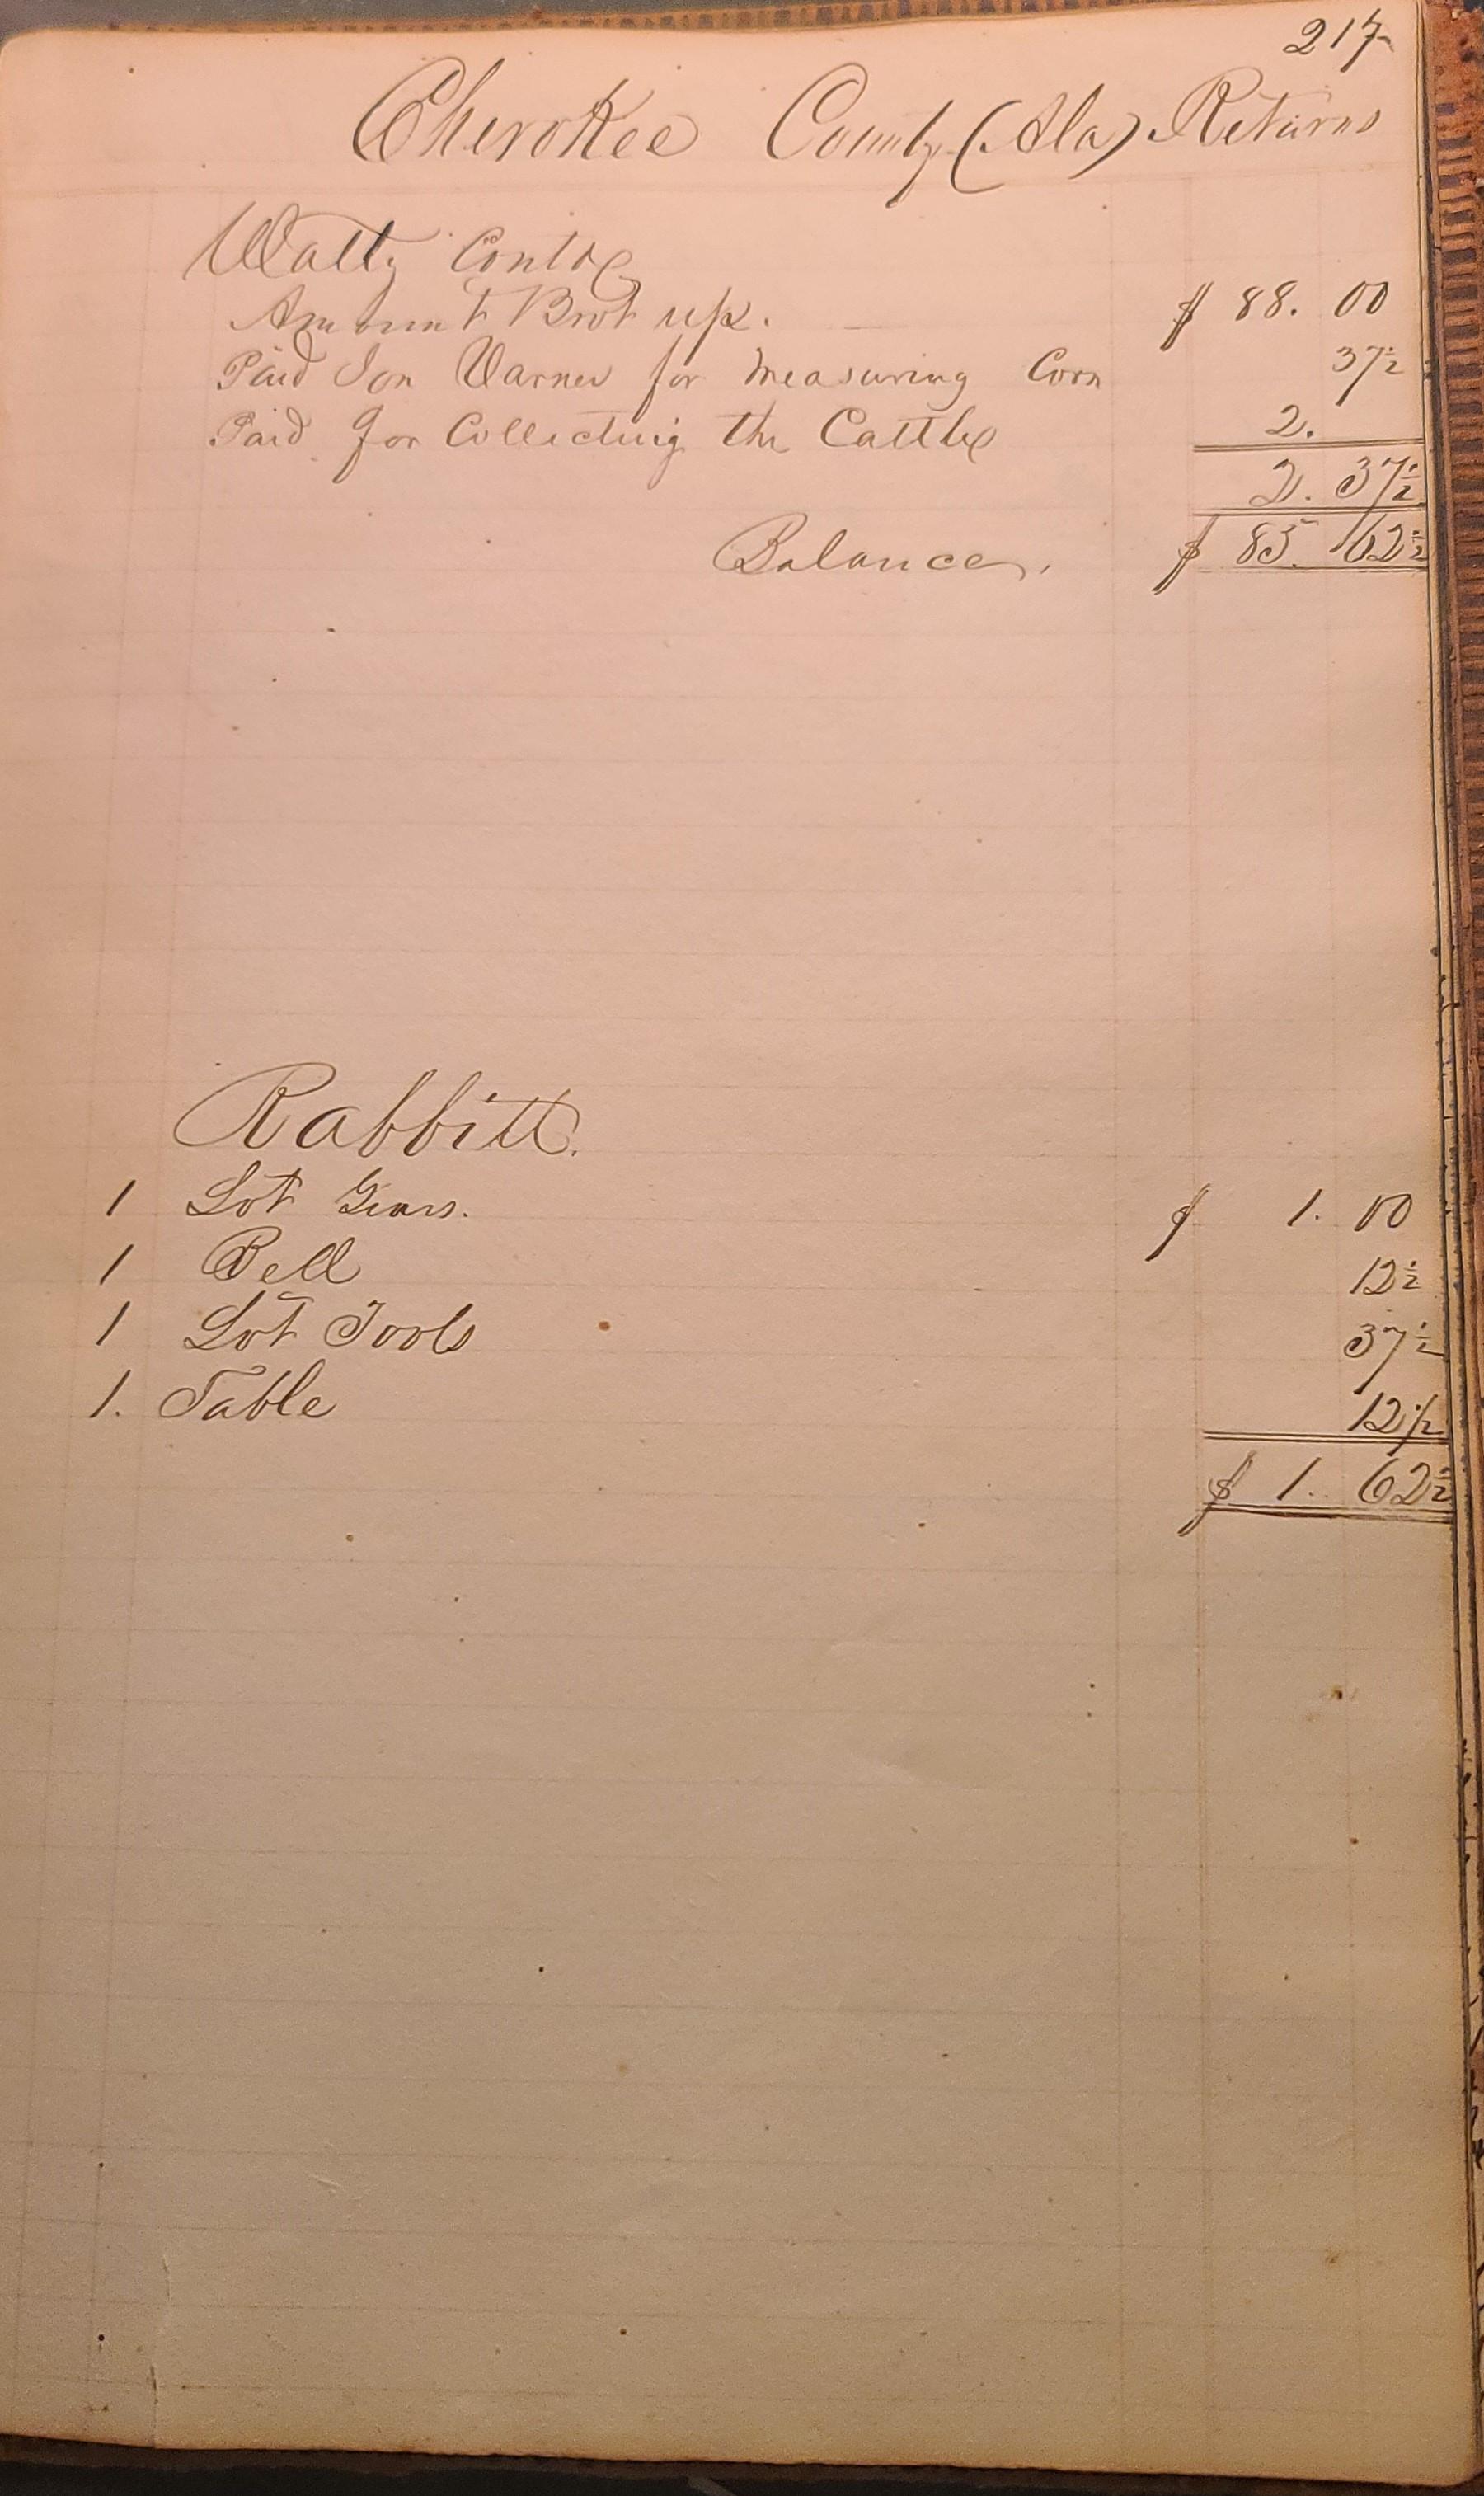 217
Cherokee County (Ala) Returns
Watty Contd
Amount Brot up. $ 88. 00
Paid Jon Varner for measuring Corn 37½
Paid for Collecting the Cattle 2.
2. 37½
Balance. $ 85. 62½
Rabbitt.
1 Lot Gears. $ 1. 00
1 Bell 12½
1 Lot Tools 37½
1. Table 12½
$ 1. 62½